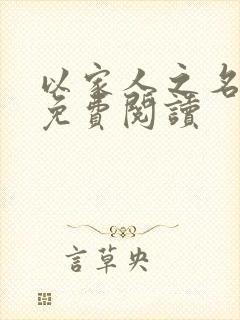 以家人之名
免費閱讀
言草央